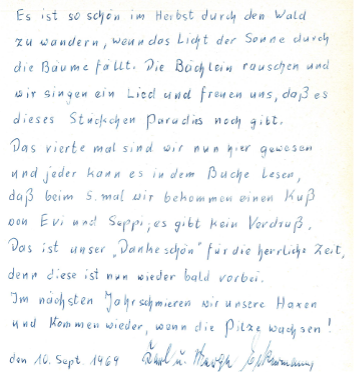 Es ist so schön im Herbst durch den Wald
zu wandern, wenn das Licht der Sonne durch
die Bäume fällt. Die Bächlein rauschen und
wir singen ein Lied und freuen uns, daß es
dieses Stückchen Paradies noch gibt.
Das vierte mal sind wir nun hier gewesen
und jeder kann es in dem Buche lesen,
daß beim 5. mal wir bekommen einen Kuß
von Evi und Seppi; es gibt kein Verdruß.
Das ist unser „Dankeschön" für die herrliche Zeit,
denn diese ist nun wieder bald vorbei.
Im nächsten Jahr schmieren wir unsere Haxen
und kommen wieder, wenn die Pilze wachsen!
den 10. Sept. 1969 Karl u.